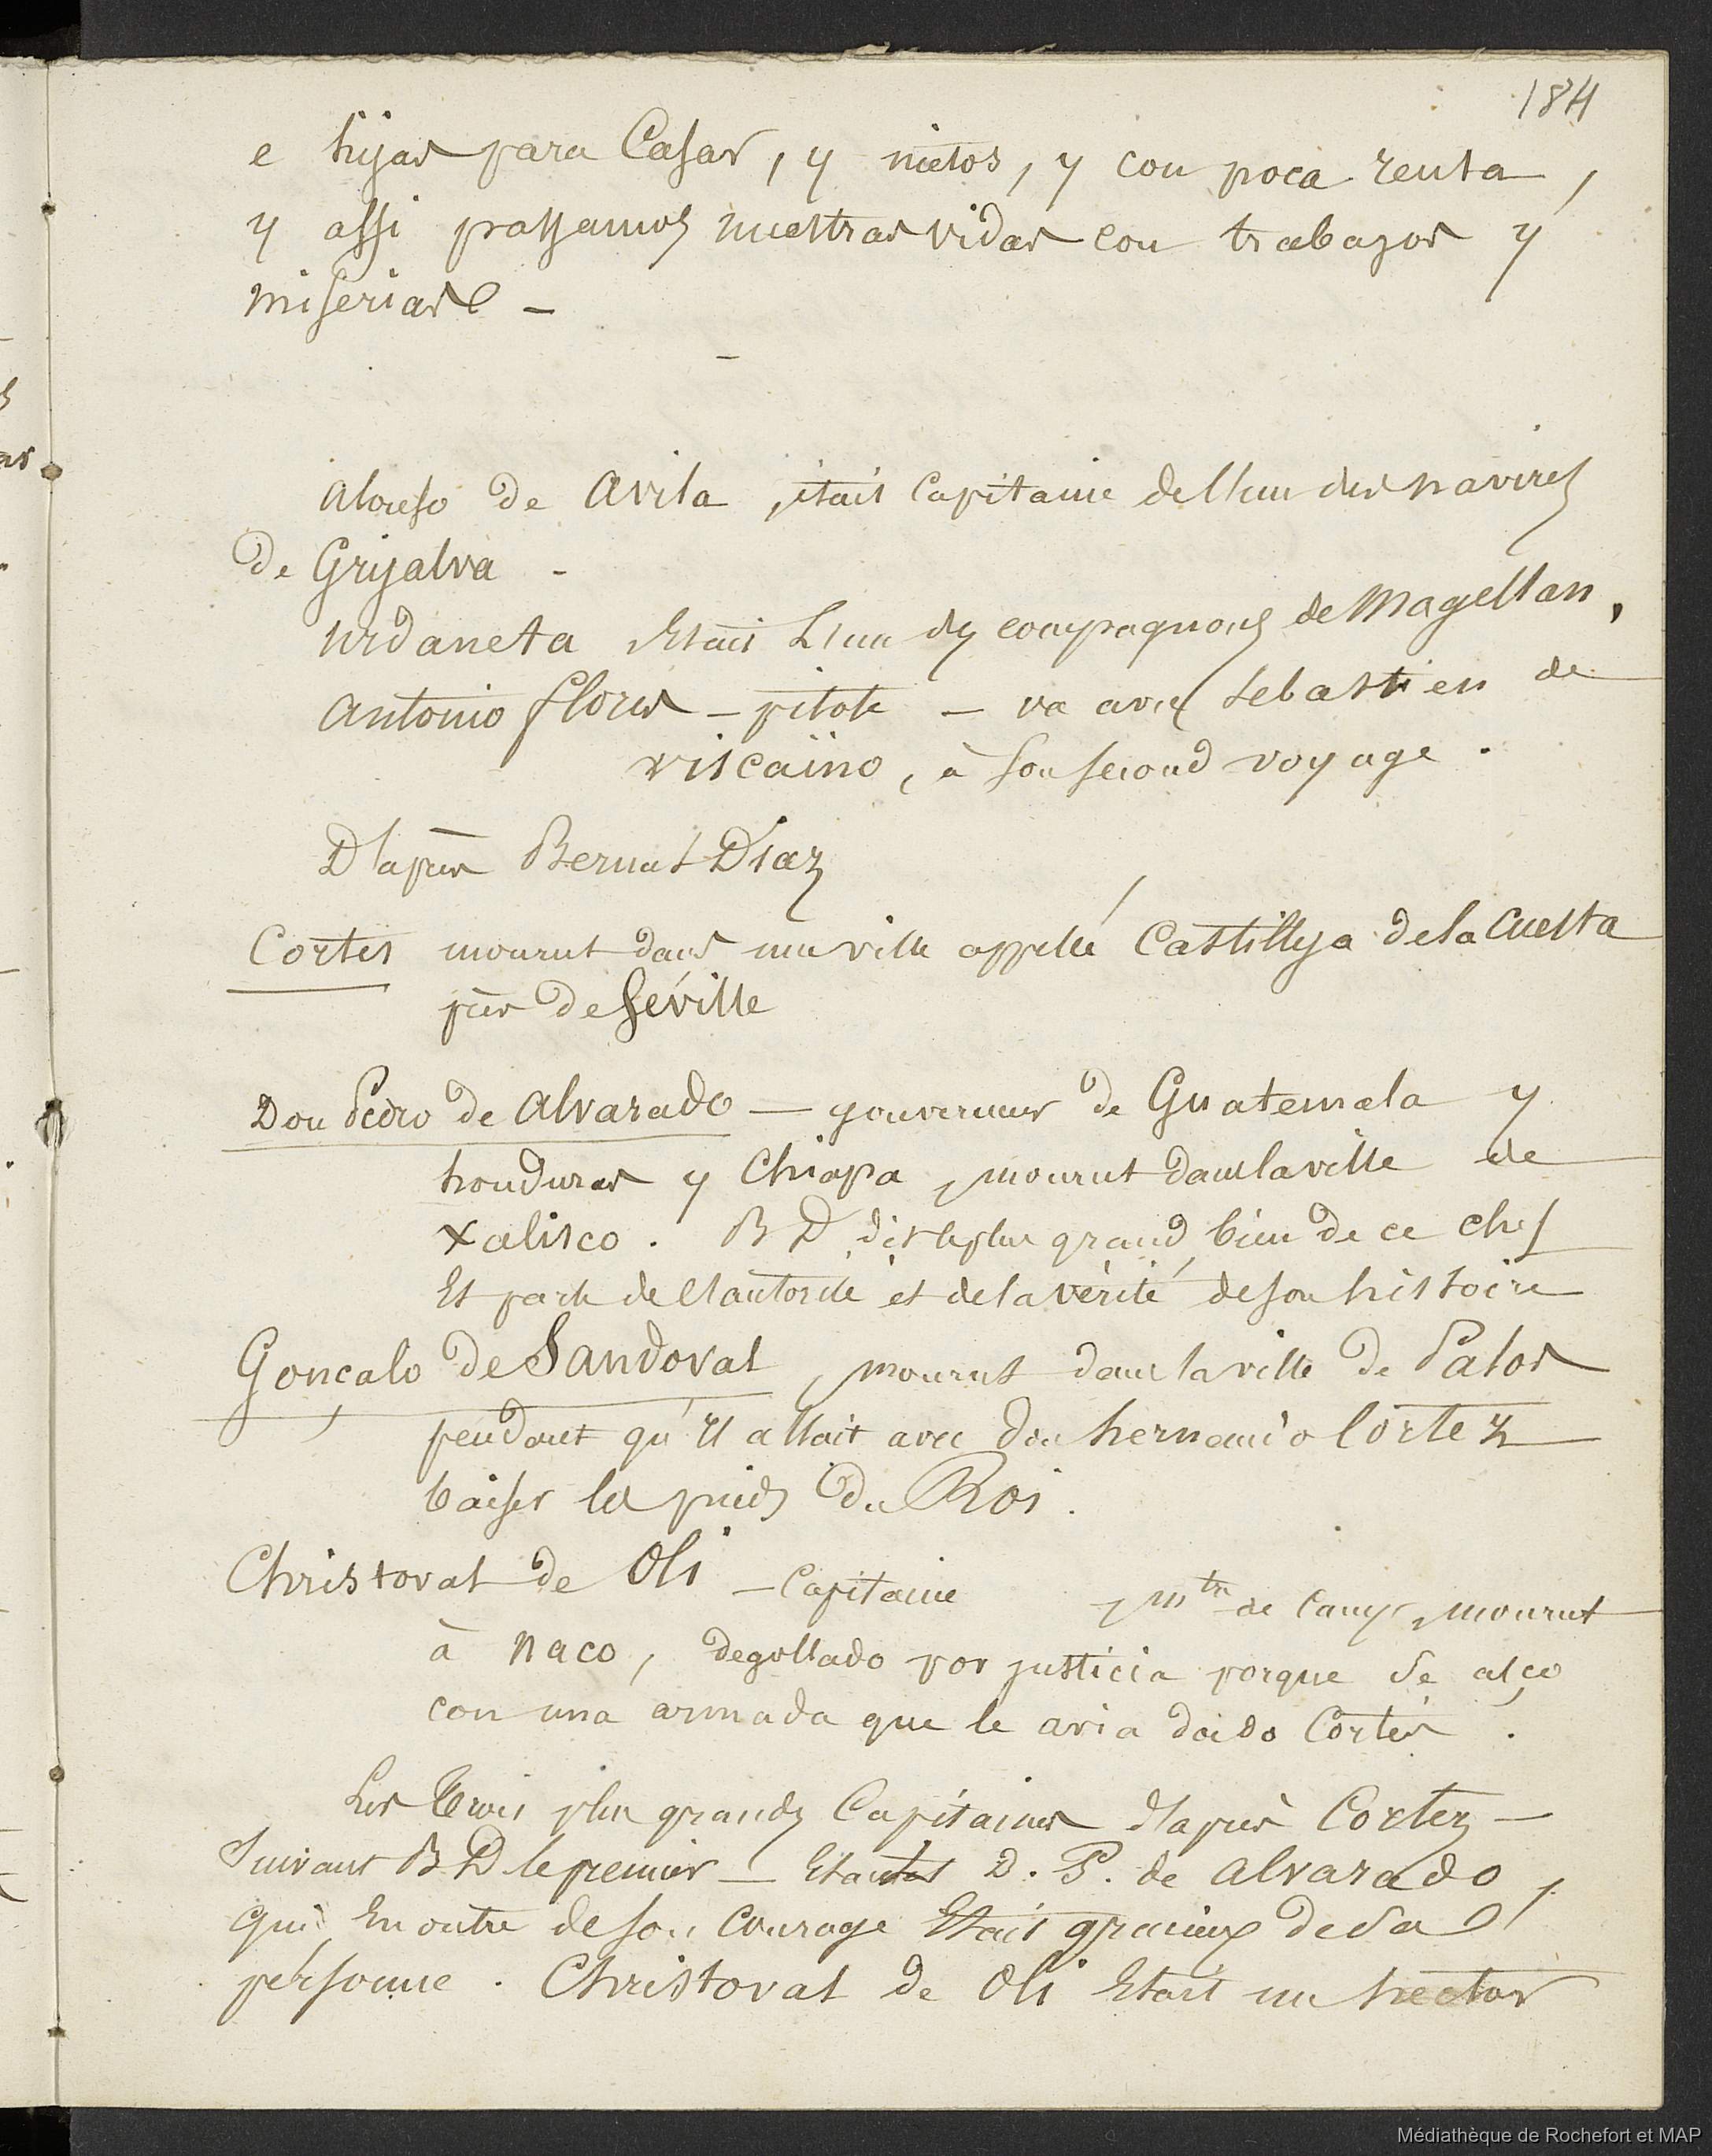 184
e hijas para Casar, y nietos, y con poca renta,
y assi passamos nuestras vidas con trabajos y
miserias –
–
Alonso de Avila, était Capitaine de l'un des navires
de Grijalva -
urdaneta Etait L'un des compagnons de Magellan,
Antonio flores – pilote – va avec Sebastien de
viscaïno, à son second voyage.
D'après Bernal Diaz
Cortes mourut dans une ville appellé Castilleja de la Cuesta
près de Séville
Don Pedro de Alvarado — gouverneur de Guatemala y
honduras y Chiapa, mourut dans la ville de
Xalisco. B D dit le plus grand bien de ce chef
Et parle de l'autorité et de la vérité de son histoire
Gonçalo de Sandoval, mourut dans la ville de Palos
pendant qu'Il allait avec don hernando Cortez
baiser les pieds du Roi.
Christoval de Oli – Capitaine , mtre de Camp, mourut
à naco, degollado por justicia porque se alço
con una armada que le avia dado Cortes.
Les trois plus grands Capitaines d'après Cortez –
Suivant B D le premier — Etait D. P. de Alvarado,
qui En outre de son Courage Etait gracieux de sa
personne. Christoval de Oli Etait un hector
Médiathèque de Rochefort et MAP